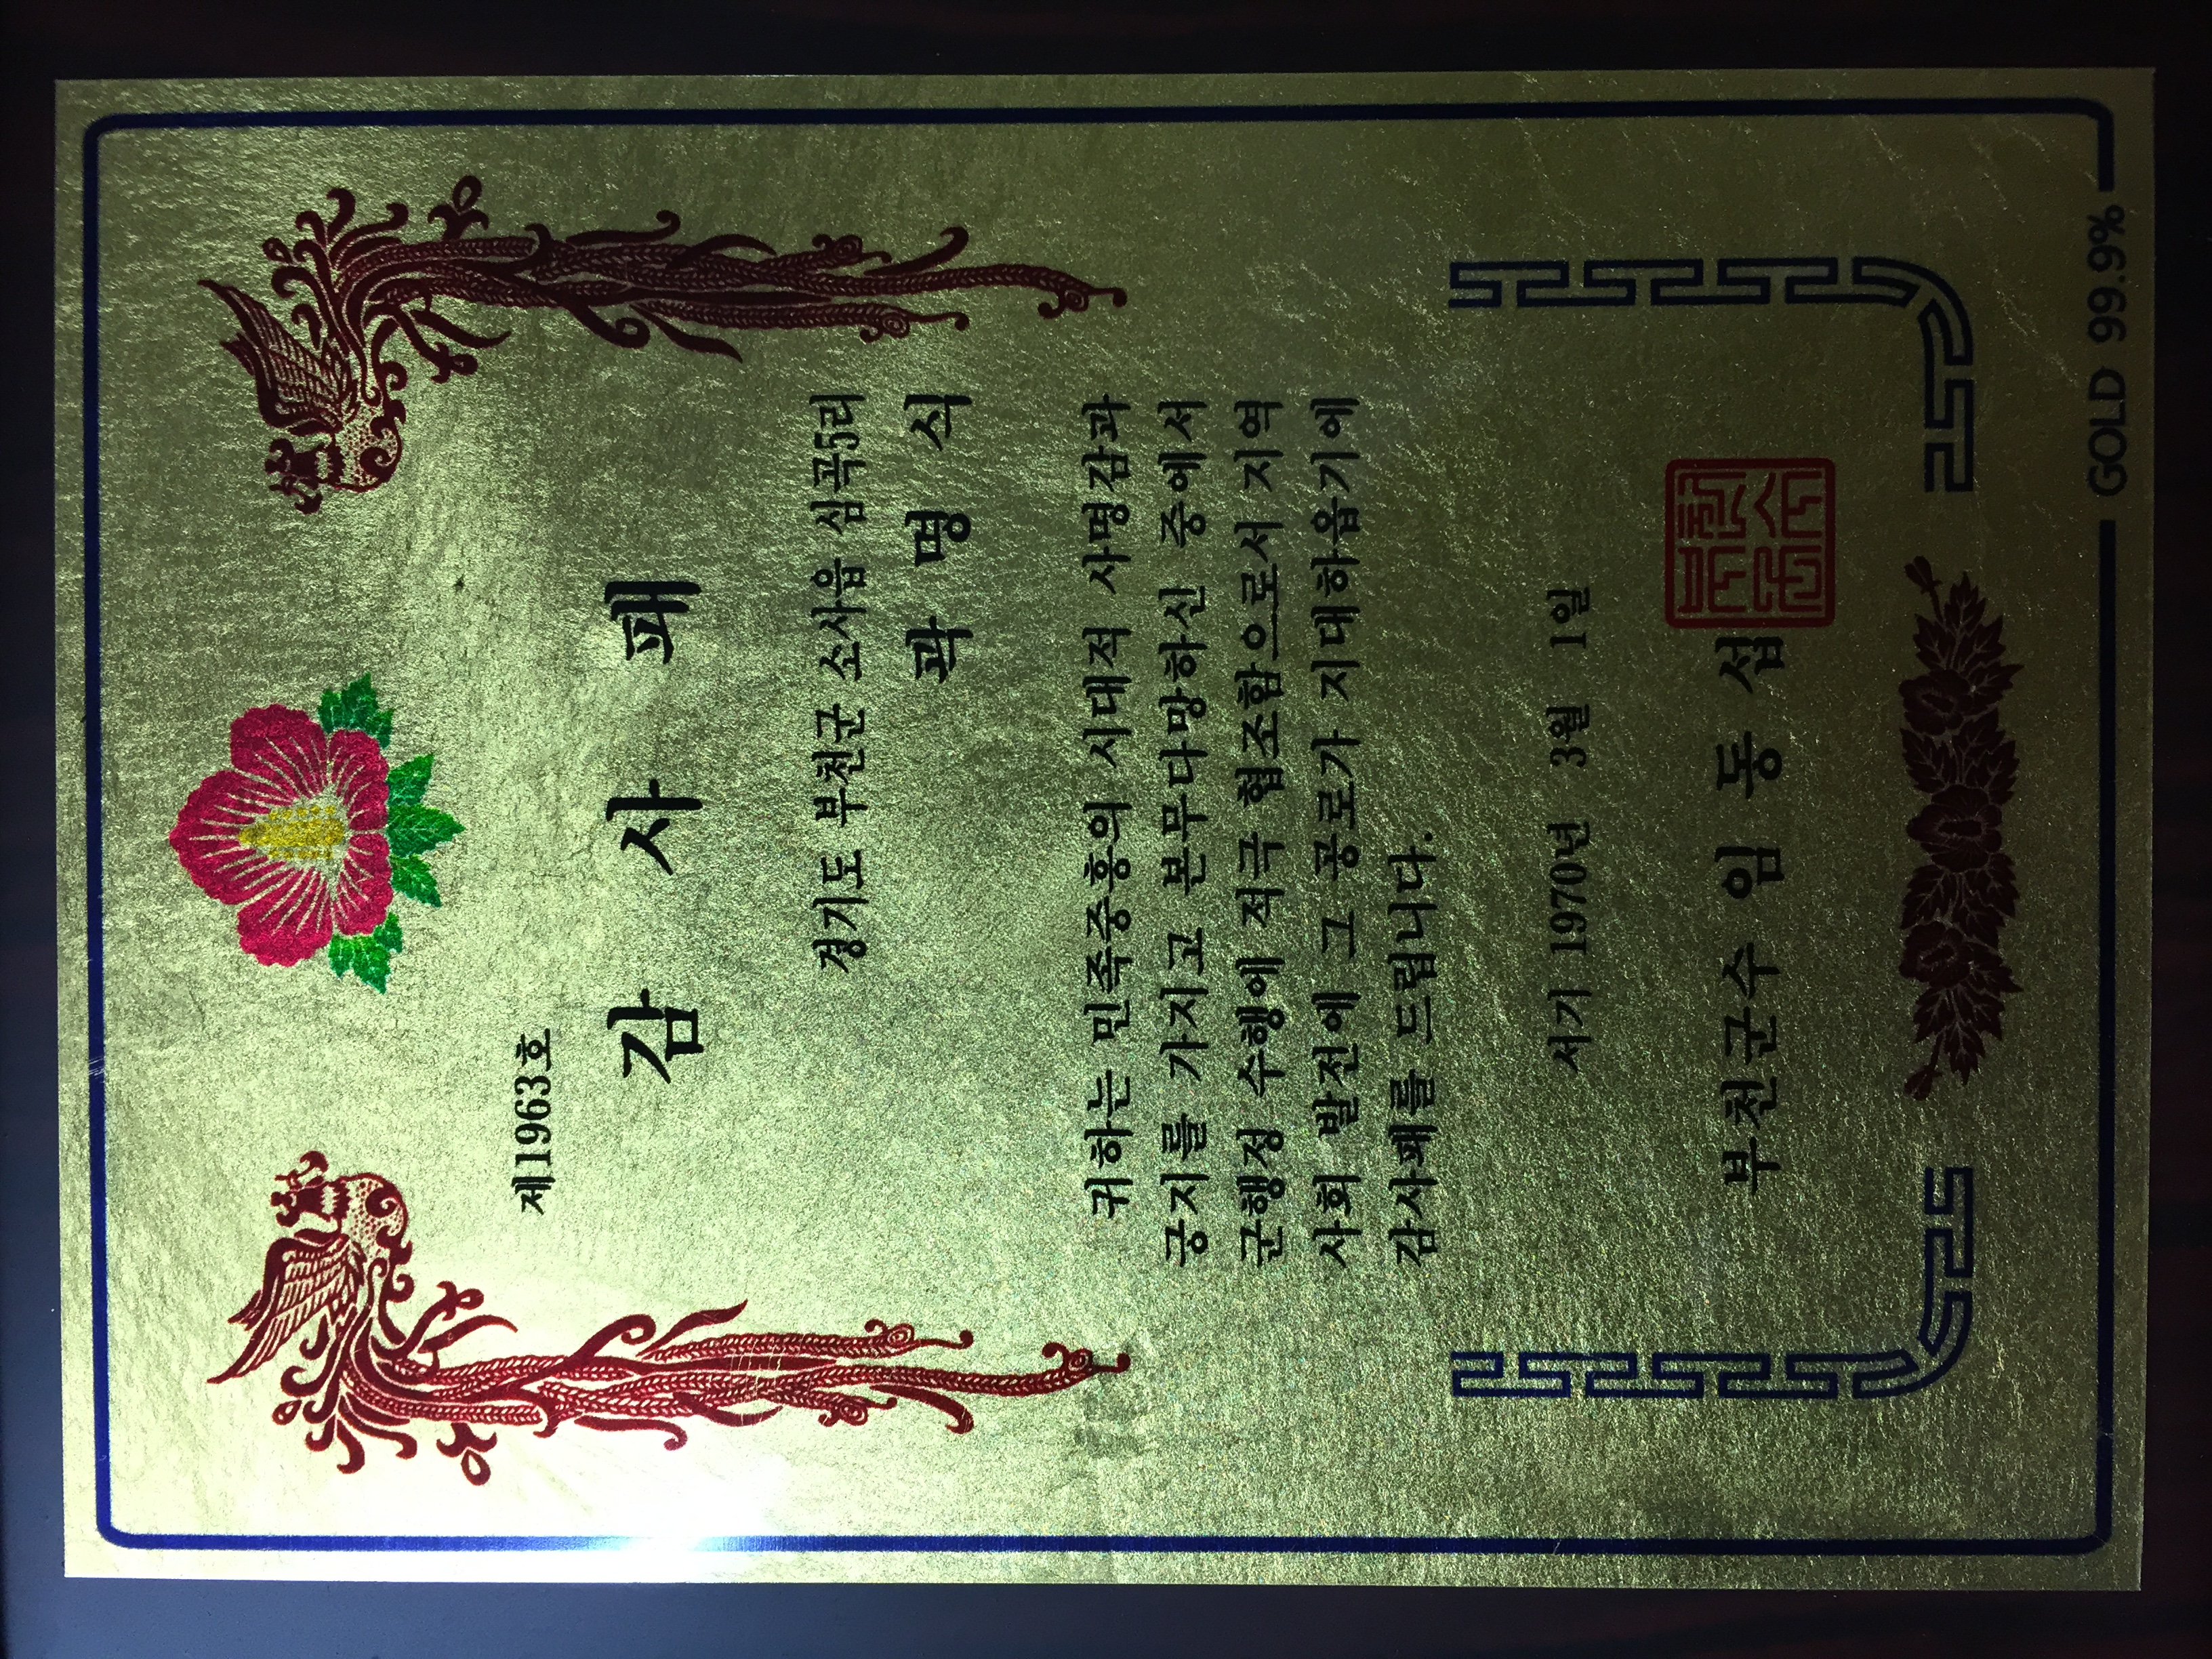 제1963호
감 사 패
경기도 부천군 소사읍 심곡5리
곽 명 식
귀하는 민족중흥의 시대적 사명감과
긍지를 가지고 본무다망하신 중에서
군행정 수행에 적극 협조함으로서 지역
사회 발전에 그 공로가 지대하옵기에
감사패를 드립니다.
서기 1970년 3월 1일
부천군수 임 동 섭
GOLD 99.9%